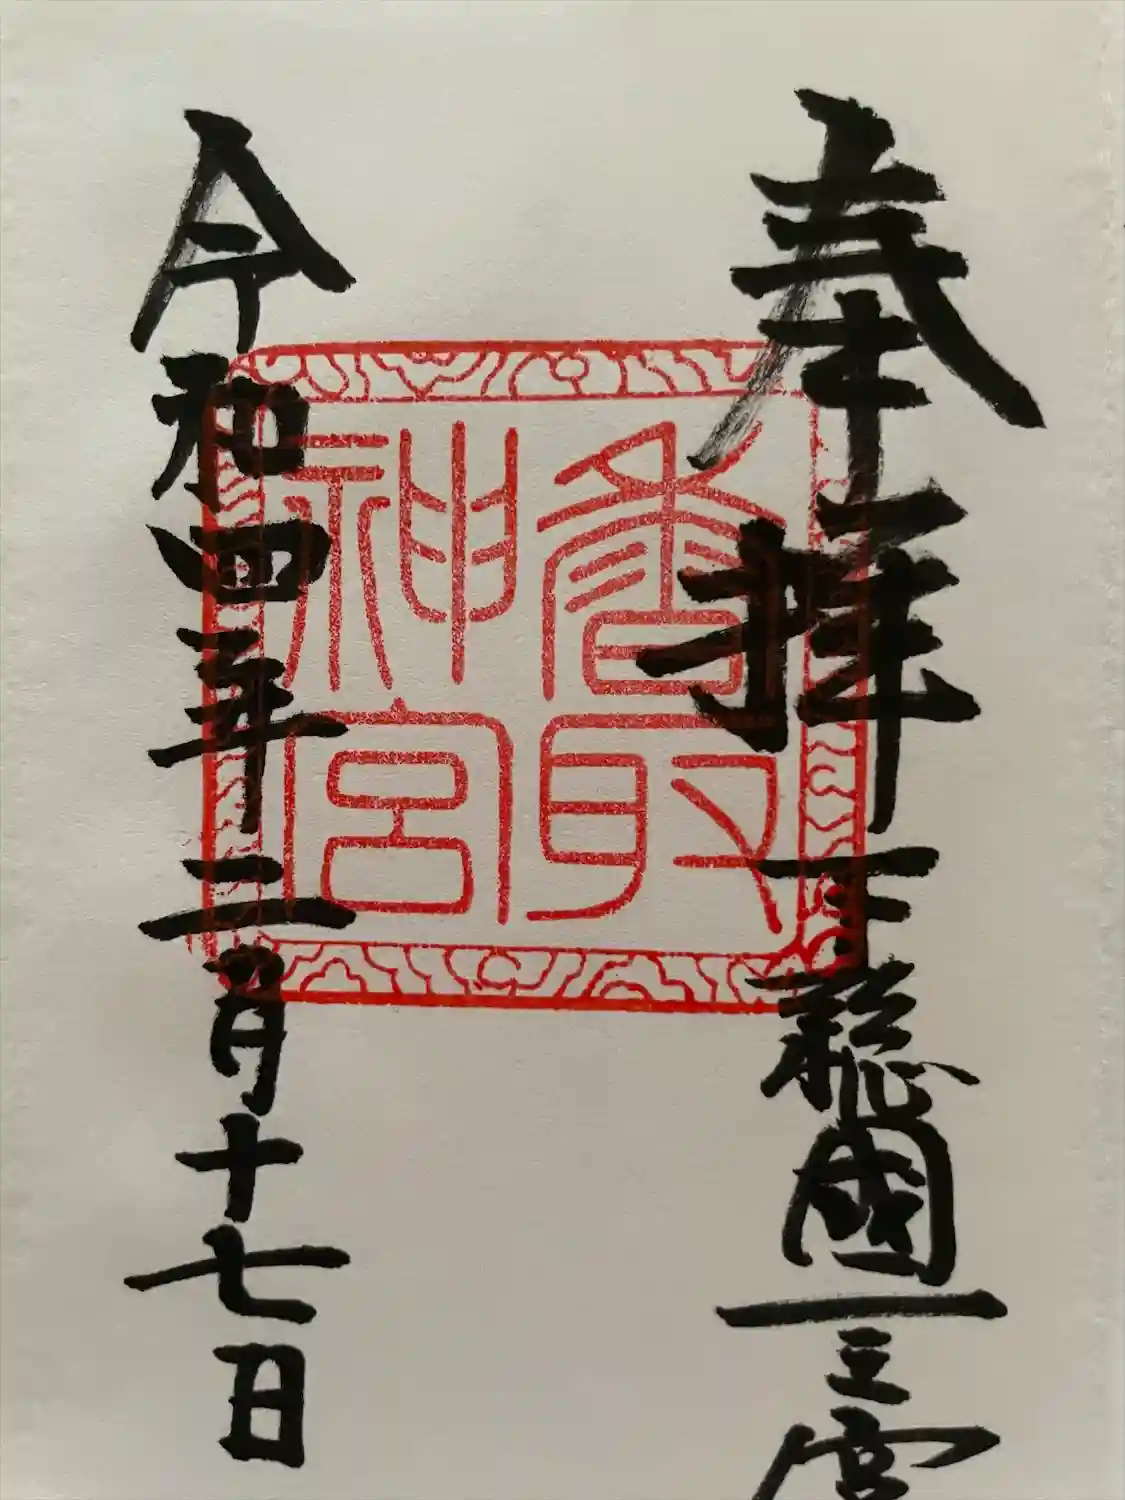 奉拝 下総國一之宮
香取
神宮
令和四年二月十七日